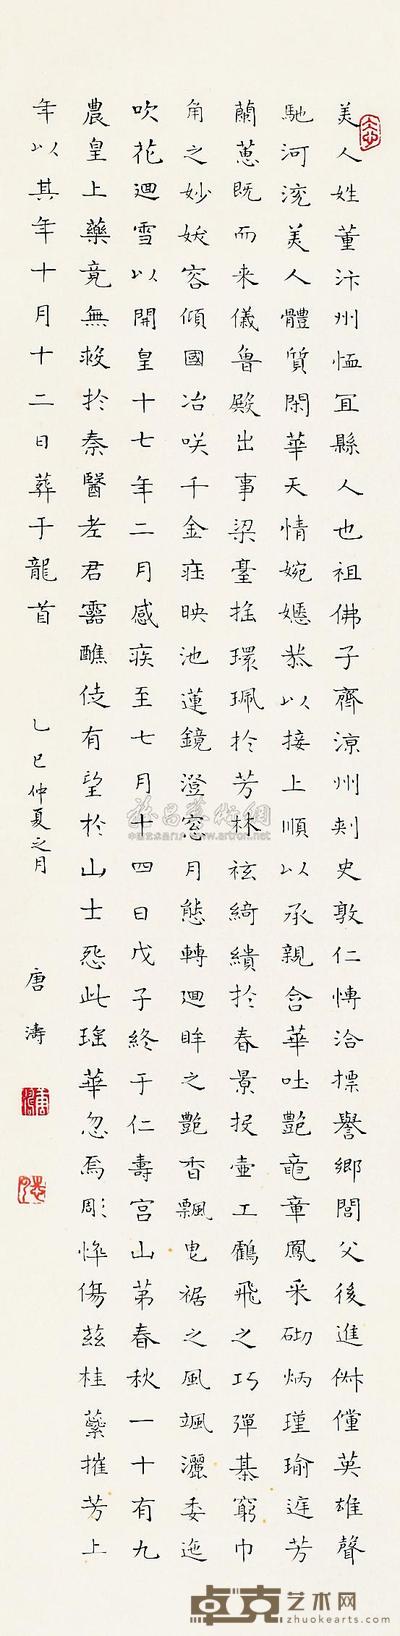 美人姓董汴州恤宜縣人也祖佛子齊涼州刺史敦仁愽洽摽譽鄉閭父後進俶儻英雄聲
馳河浼美人體質閑華天情婉嫕恭以接上順以承親含華吐艷竜章鳳采砌炳瑾瑜庭芳
蘭蕙既而来儀魯殿出事梁臺摇環珮扵芳林袨綺繢扵春景投壺工鶴飛之巧彈棊窮巾
角之妙妖容傾國冶咲千金莊映池蓮鏡澄窓月態轉迴眸之艷香飄曳裾之風颯灑委迤
吹花迴雪以開皇十七年二月感疾至七月十四日戊子終于仁壽宮山第春秋一十有九
農皇上藥竟無救扵秦醫老君靈醮徒有望扵山士怨此瑤華忽焉彫悴傷茲桂蘂摧芳上
年以其年十月十二日葬于龍首
乙巳仲夏之月 唐濤
卓克艺术网
zhuokearts.com